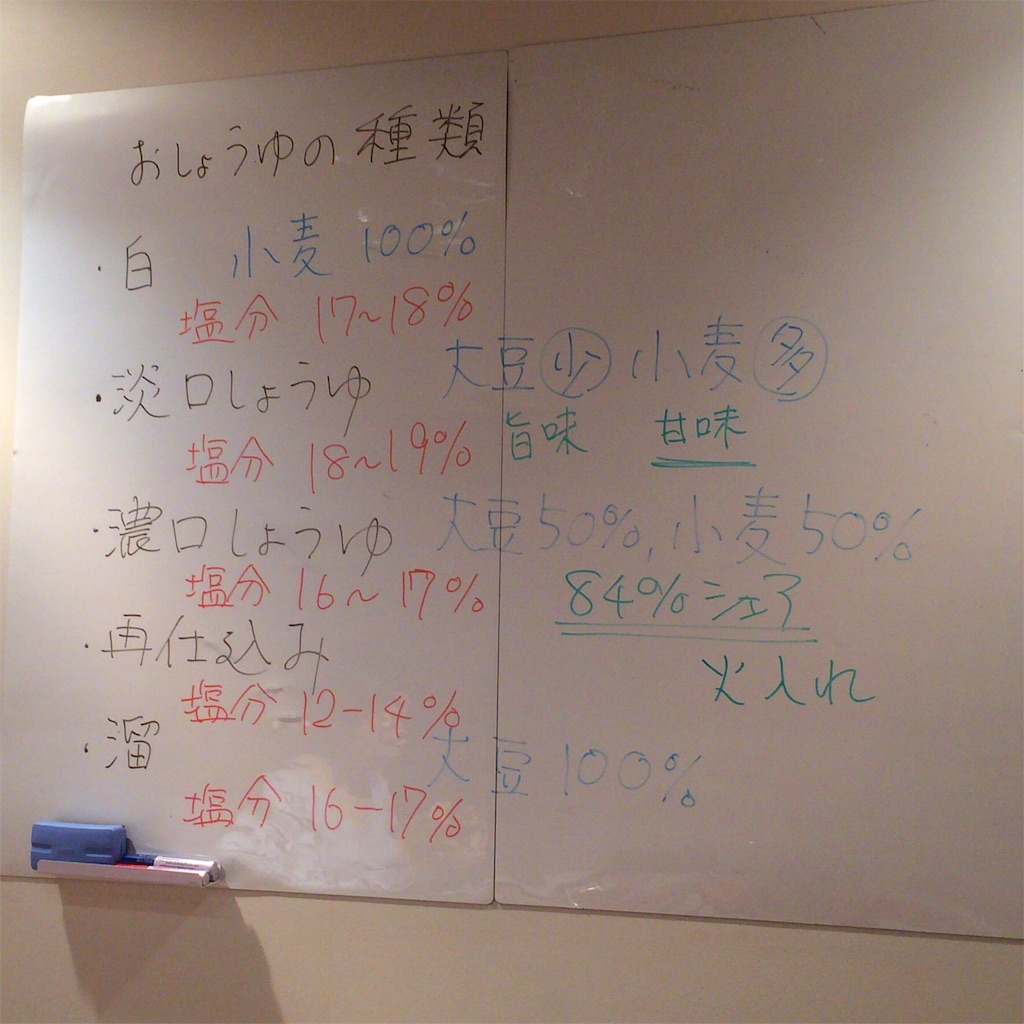 おしょうゆの種類
・白 小麦 100%
塩分 17~18%
・淡口しょうゆ 大豆少 小麦多
塩分 18~19% 旨味 甘味
・濃口しょうゆ 大豆50%, 小麦50%
塩分 16~17% 84%シェア
・再仕込み 火入れ
塩分 12-14%
・溜 大豆 100%
塩分 16-17%